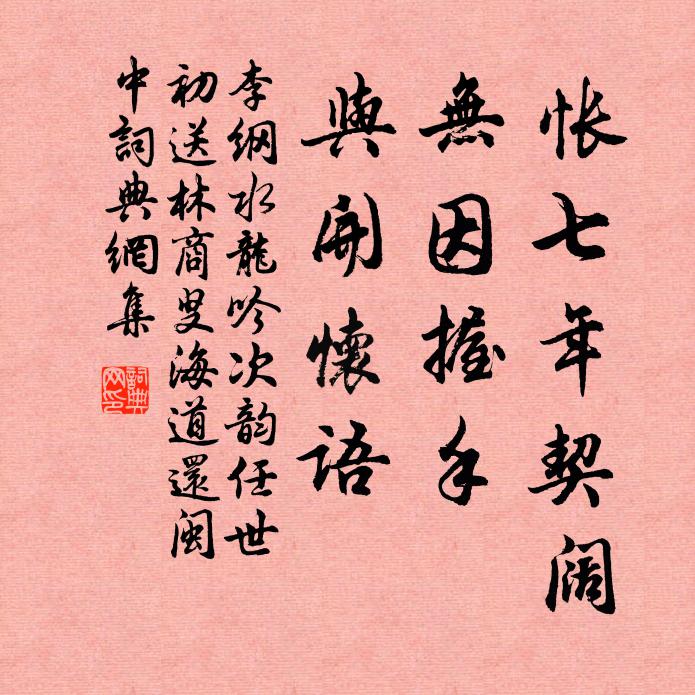 悵七年契阔
無因握手
與開懷語
李纲水龍吟次韵任世
初送林商叟海道還闽
中詞典網集
詞典網印